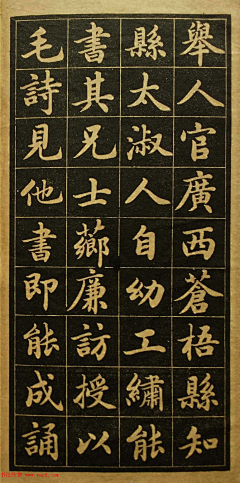 舉人官廣西蒼梧縣知
縣太淑人自幼工繡能
書其兄士薌廉訪授以
毛詩見他書即能成誦